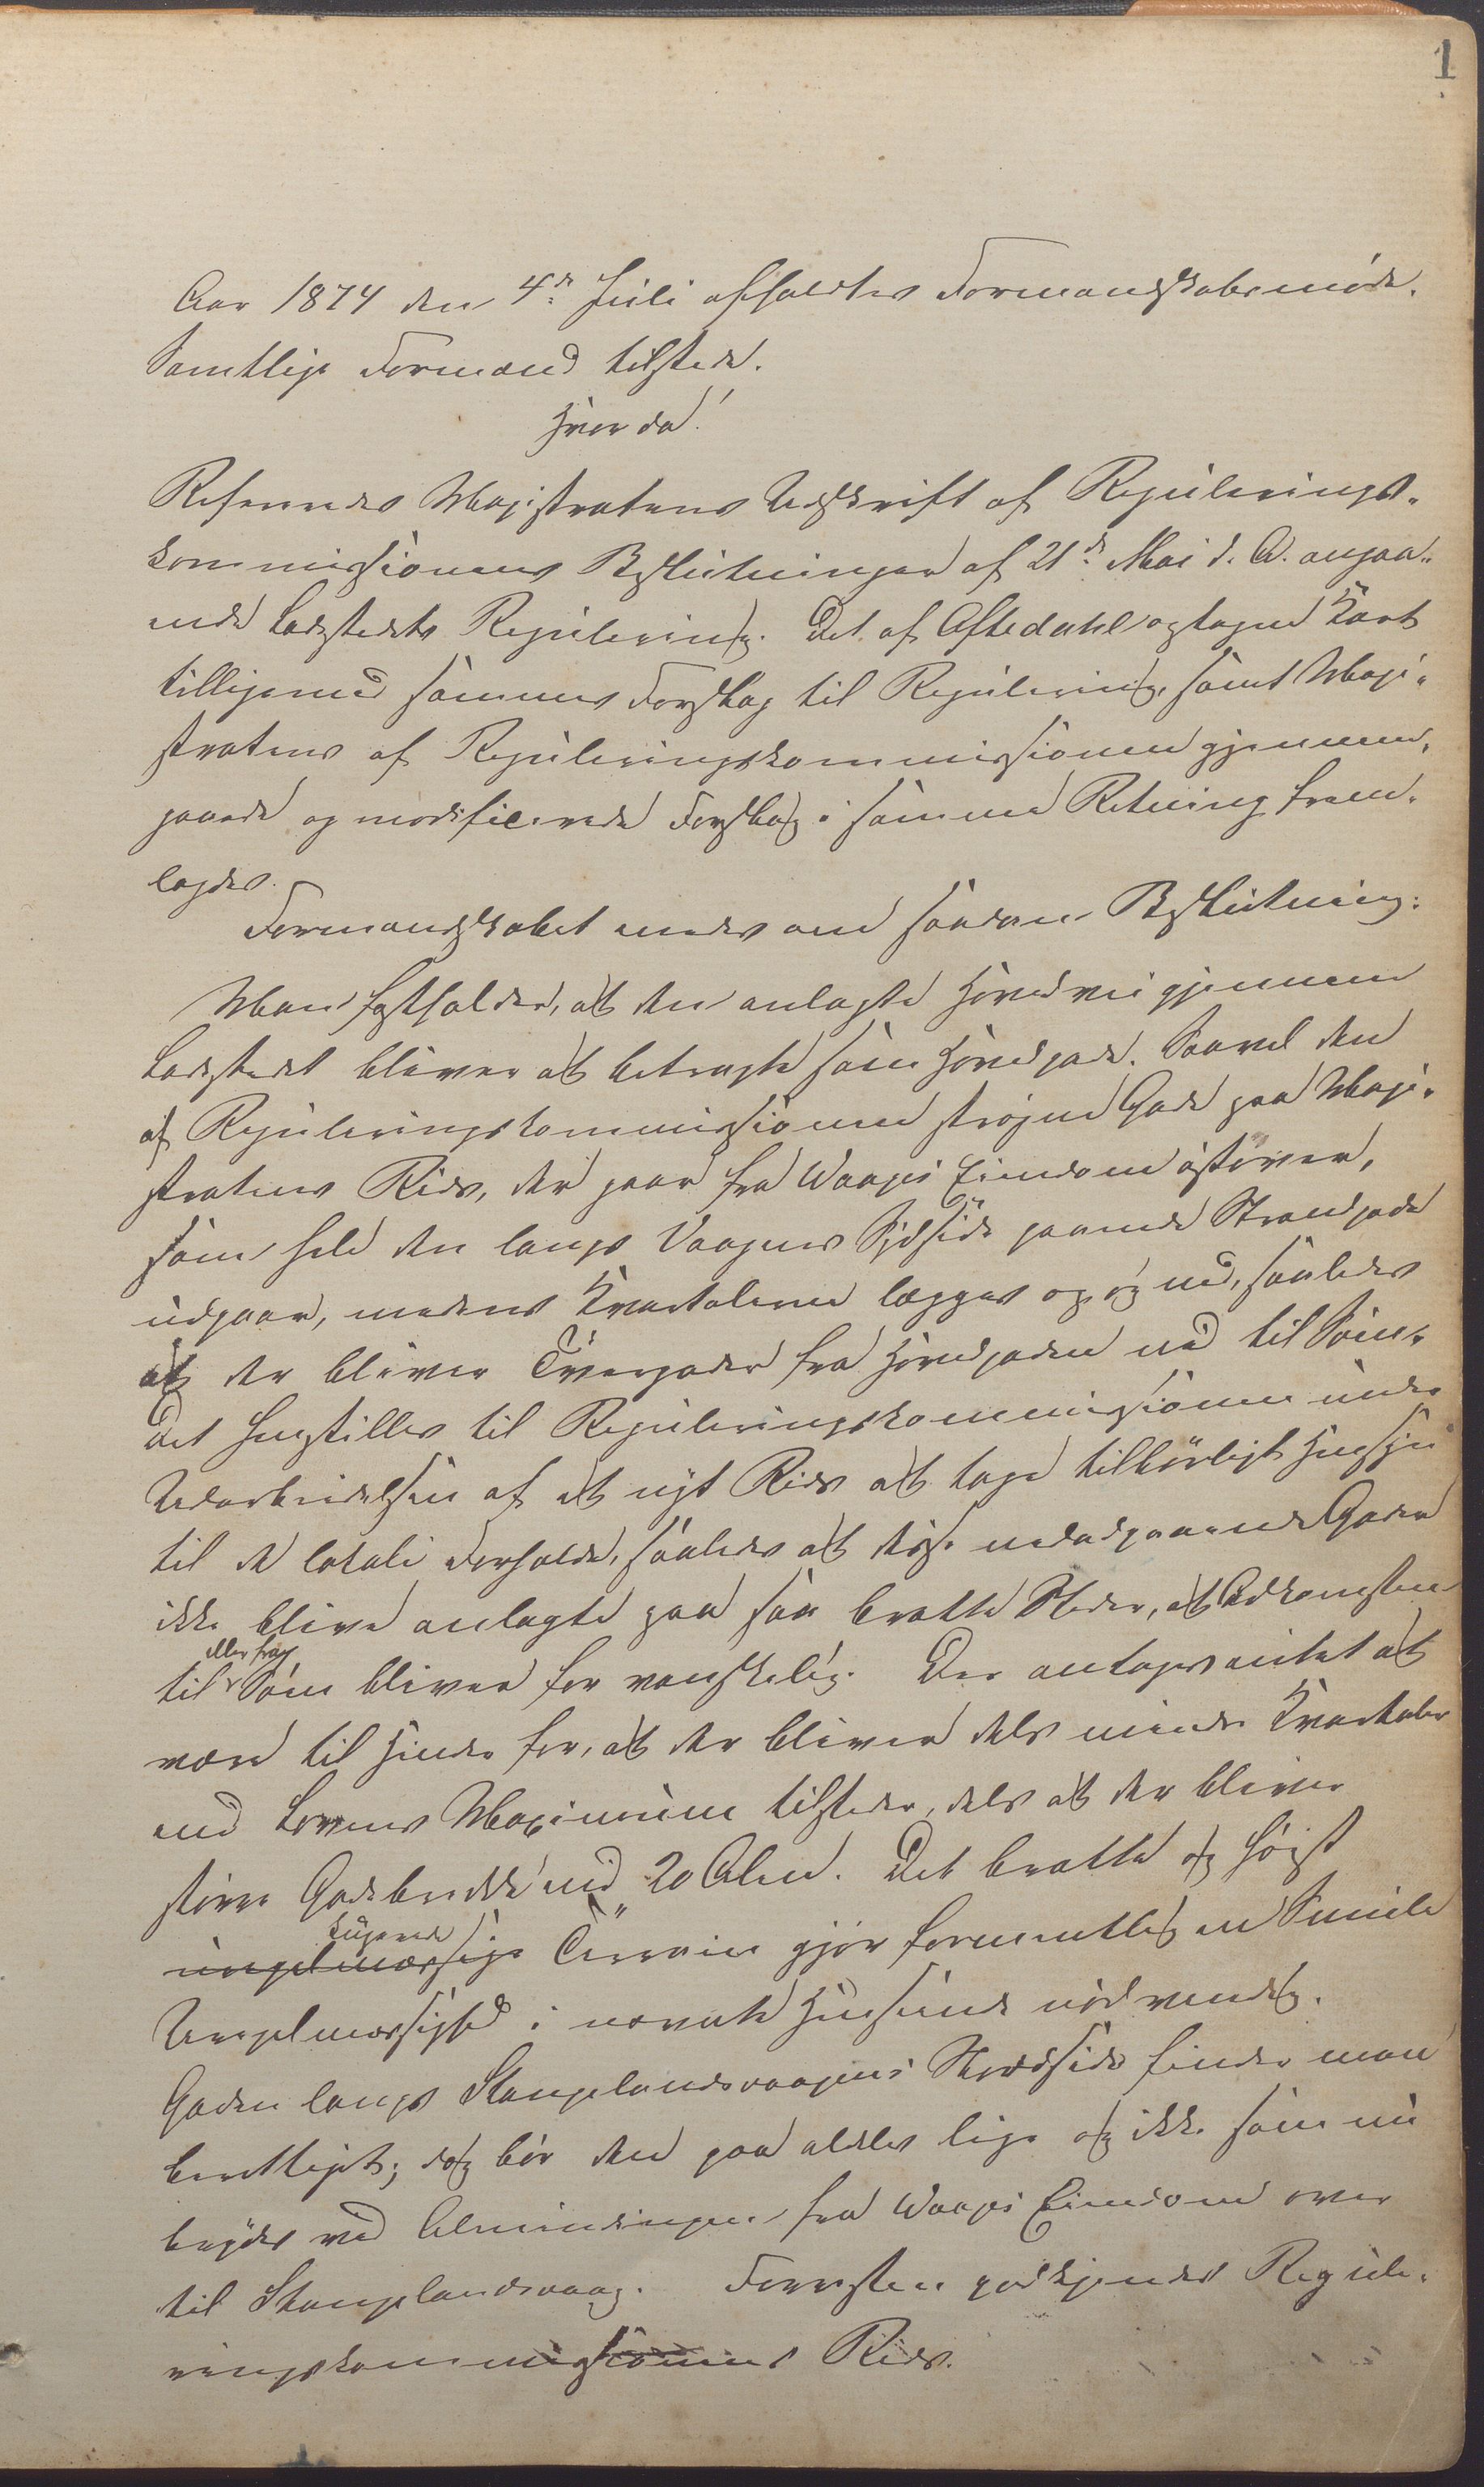 1
Aar 1874 den 4de Juli afholdtes Formandskabsmöde.
Samtlige Formænd tilstede.
Hvorda!
Refereredes Magistratens Udskrift af Regulerings-
kommissionens Beslutninger af 21de Mai d. A. angaa-
ende Ladestedets Regulering. Det af Aftedahl optagne Kart
tilligemed sammes Forslag til Regulering, samt Magi-
stratens af Reguleringskommissionen gjennem-
gaaede og modificerede Forslag i samme Retning frem-
lagdes.
Formandskabet enedes om saadan Beslutning:
Man fastholder, at den anlagte Hovedvei gjennem
Ladestedet bliver at betragte som Hovedgade. Saavel den
af Reguleringskommissionen strögne Gade paa Magi-
stratens Rids, der gaar fra Waages Eiendom östover,
som hele den langs Vaagens Sydside gaaende Strandgade
udgaar, medens Kvartalerne lægges op og ned, saaledes
at der bliver Tvergader fra Hovedgaden ned til Söen.
Det henstilles til Reguleringskommissionen under
Udarbeidelsen af et nyt Rids at tage tilbörligt Hensyn
til de lokale Forholde, saaledes at disse nedadgaaende Gader
ikke blive anlagte paa saa bratte Steder, at Adkomsten
til eller fra Söen bliver for vanskelig. Der antages intet at
være til Hinder for, at der bliver dels mindre Kvartaler
end Lovens Maximum tilsteder, dels at der bliver
större Gadebredde end 20 Alen. Det bratte og höist
uregelmæssige kuperede Terrain gjör formentlig en Smule
Uregelmæssighed i nævnte Henseende nödvendig.
Gaden langs Skangelandsvaagens Nordside finder man
berettiget; dog bör den gaa aldeles lige og ikke som nu
böiet ved Almindingen fra Waages Eiendom over
til Skangelandsvaag. Forresten godkjendes Regule-
ringskommissionens Rids.